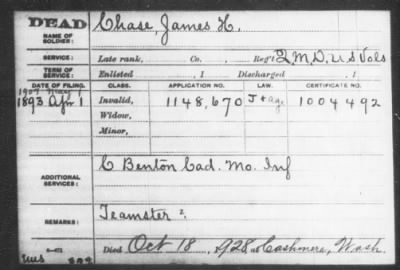 DEAD
NAME OF SOLDIER: Chase, James H.
SERVICE: Late rank, Co. Reg't Q. M. D. U S Vols
TERM OF SERVICE: Enlisted , 1 Discharged , 1
DATE OF FILING. CLASS. APPLICATION NO. LAW. CERTIFICATE NO.
1907
1893 Apr 1 Invalid, 1148,670 J + age 1004492
Widow,
Minor,
ADDITIONAL SERVICES: C Benton Cad. Mo. Inf
REMARKS: Teamster
Died Oct 18, 1928 at Cashmere, Wash.